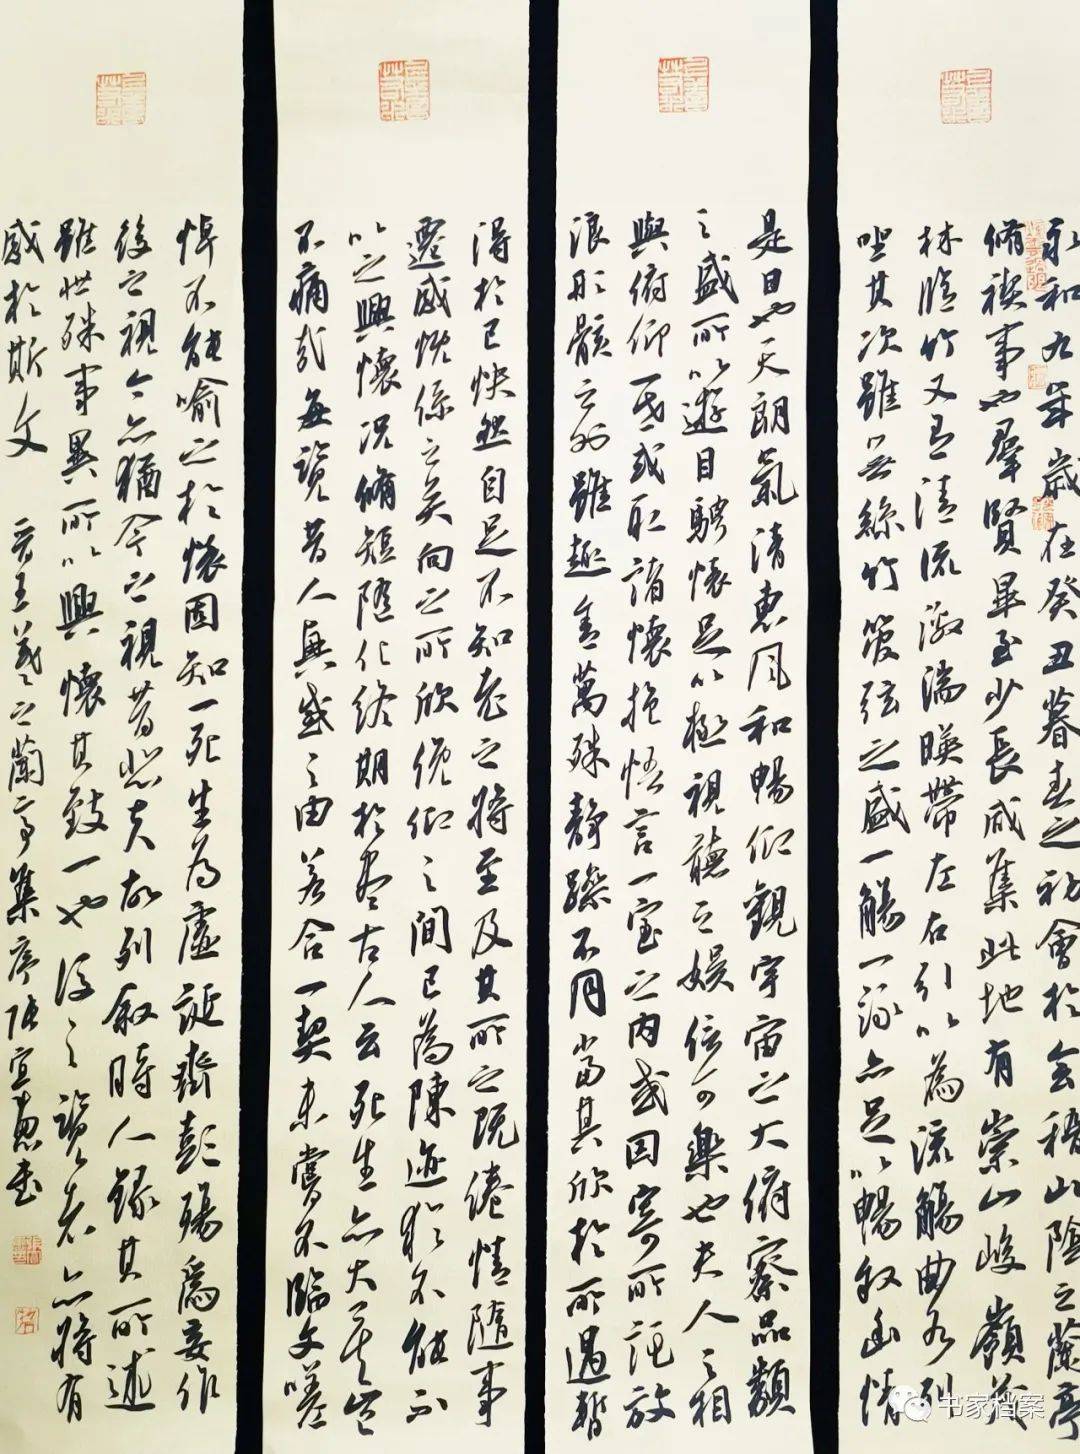 永和九年歲在癸丑暮春之初會於會稽山陰之蘭亭
脩禊事也羣賢畢至少長咸集此地有崇山峻嶺茂
林脩竹又有清流激湍暎帶左右引以為流觴曲水列
坐其次雖無絲竹管弦之盛一觴一詠亦足以暢敘幽情
是日也天朗氣清惠風和暢仰觀宇宙之大俯察品類
之盛所以遊目騁懷足以極視聽之娛信可樂也夫人之相
與俯仰一世或取諸懷抱悟言一室之內或因寄所託放
浪形骸之外雖趣舍萬殊靜躁不同當其欣於所遇暫
得於己快然自足不知老之將至及其所之既倦情隨事
遷感慨係之矣向之所欣俛仰之間已為陳迹猶不能不
以之興懷況脩短隨化終期於盡古人云死生亦大矣豈
不痛哉每覽昔人興感之由若合一契未嘗不臨文嗟
悼不能喻之於懷固知一死生為虛誕齊彭殤為妄作
後之視今亦猶今之視昔悲夫故列敘時人錄其所述
雖世殊事異所以興懷其致一也後之覽者亦將有
感於斯文 晉王羲之蘭亭集序張宣惠書
书家档案